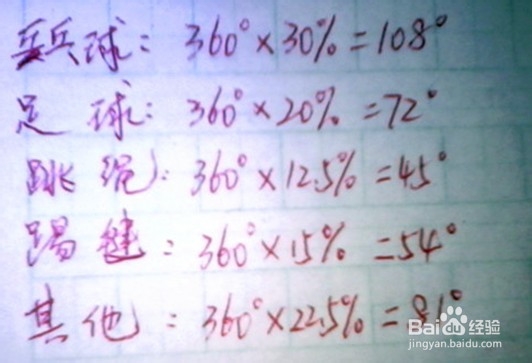 乒乓球: 360°×30%=108°
足球: 360°×20%=72°
跳绳: 360°×12.5%=45°
踢毽: 360°×15%=54°
其他: 360°×22.5%=81°
Baidu经验
jingyan.baidu.com